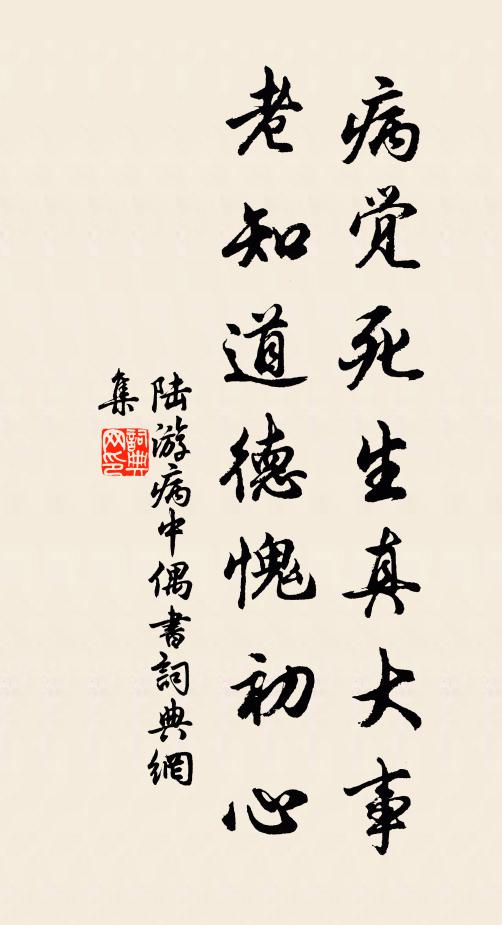 病觉死生真大事
老知道德愧初心
陆游病中偶書詞典網
集
詞典
网印